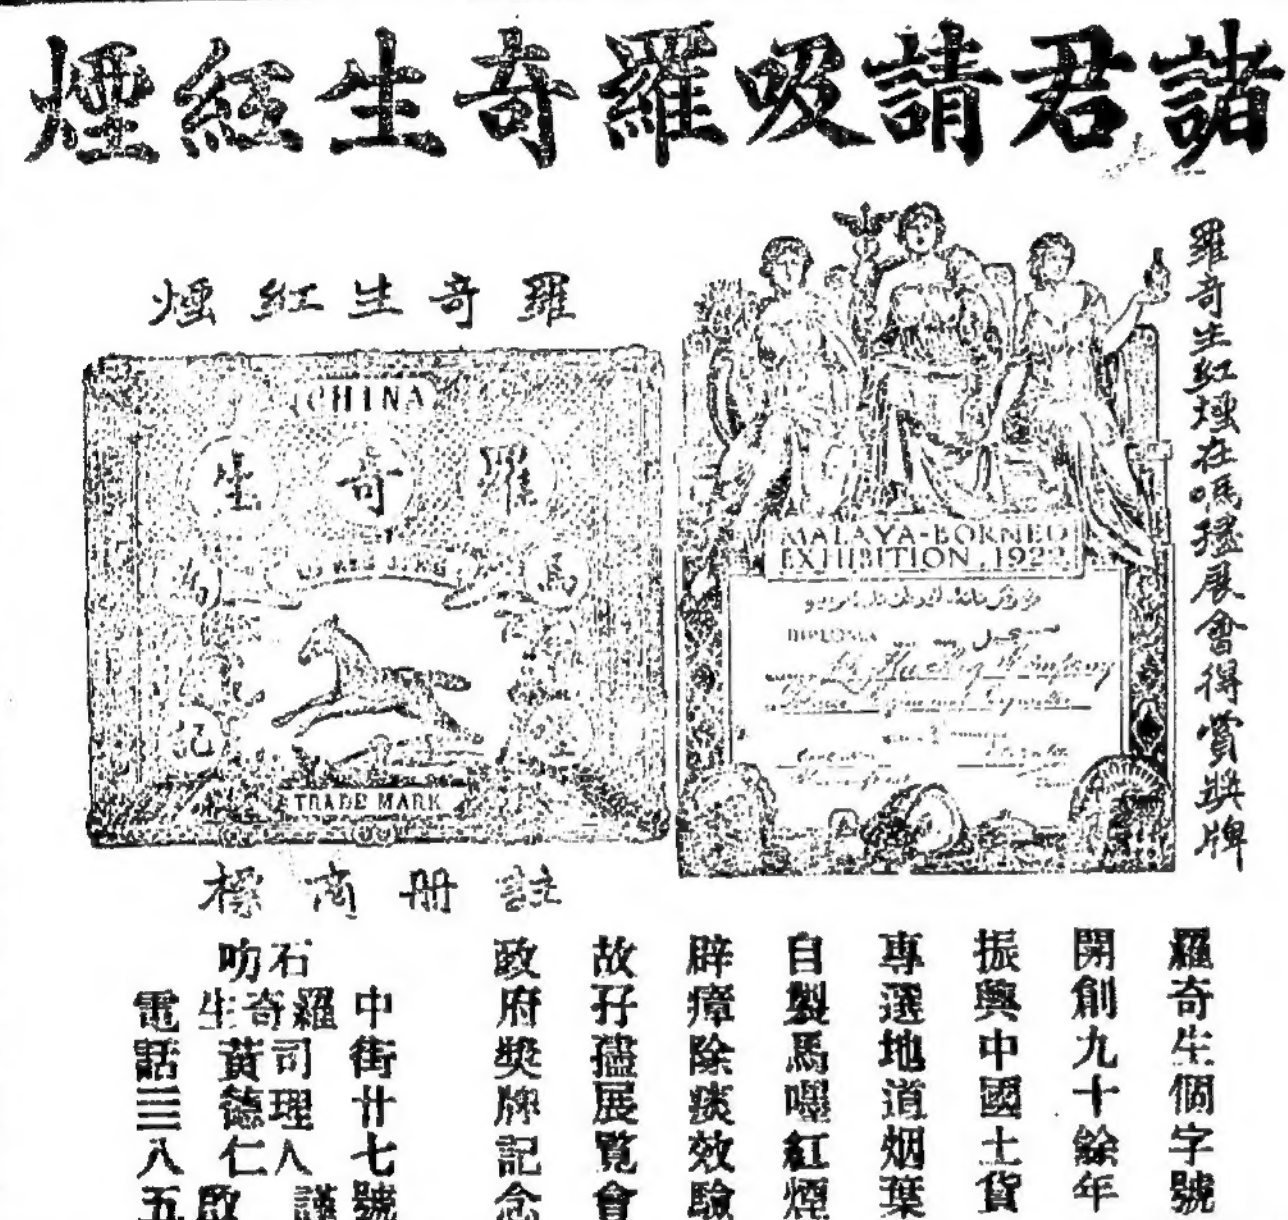 諸君請吸羅奇生紅煙
羅奇生紅煙在嗎𡥧展會得賞獎牌
MALAYA-BORNEO
EXHIBITION, 1922
DIPLOMA
羅奇生紅煙
CHINA
羅奇生
馬
記
TRADE MARK
註册商標
羅奇生個字號
開創九十餘年
振興中國土貨
專選地道烟葉
自製馬嘜紅煙
辟瘴除痰效驗
故孖𡥧展覽會
政府獎牌記念
石叻
中街廿七號
羅奇生
司理人黃德仁
謹啟
電話三三八五